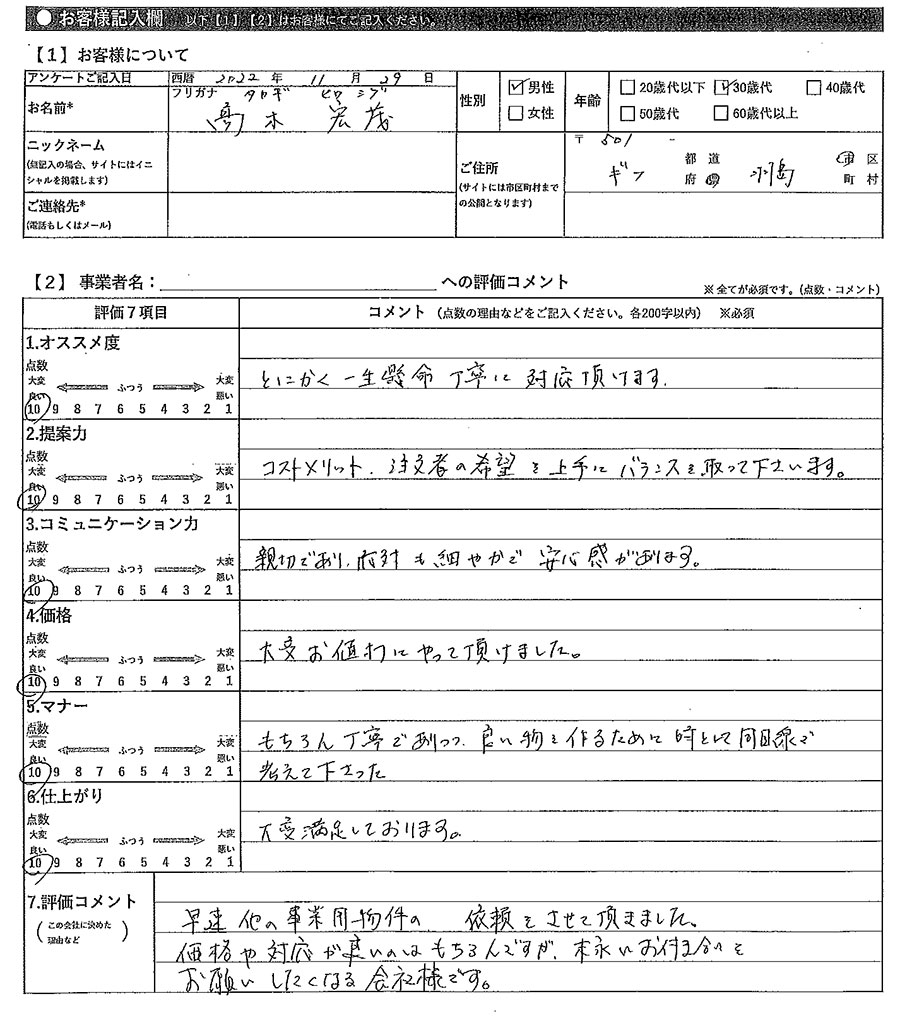 ● お客様記入欄 以下【1】【2】はお客様にてご記入ください。
【1】お客様について
アンケートご記入日 西暦 2022 年 11 月 29 日
性別 ☑男性 □女性
年齢 □20歳代以下 ☑30歳代 □40歳代 □50歳代 □60歳代以上
お名前* フリガナ タカギ ヒロシゲ
髙木 宏茂
ニックネーム
(無記入の場合、サイトにはイニ
シャルを掲載します)
ご住所
(サイトには市区町村まで
の公開となります)
〒 501 -
ギフ 都 道 府 県 羽島 市 区 町 村
ご連絡先*
(電話もしくはメール)
【2】 事業者名: への評価コメント
※全てが必須です。(点数・コメント)
評価7項目 コメント (点数の理由などをご記入ください。各200字以内) ※必須
1.オススメ度
点数
大変 ふつう 大変
良い 悪い
10 9 8 7 6 5 4 3 2 1
とにかく 一生懸命 丁寧に 対応頂けます.
2.提案力
点数
大変 ふつう 大変
良い 悪い
10 9 8 7 6 5 4 3 2 1
コストメリット、注文者の希望を上手にバランスを取って下さいます。
3.コミュニケーション力
点数
大変 ふつう 大変
良い 悪い
10 9 8 7 6 5 4 3 2 1
親切であり、応対も細やかで 安心感があります。
4.価格
点数
大変 ふつう 大変
良い 悪い
10 9 8 7 6 5 4 3 2 1
大変お値打にやって頂けました。
5.マナー
点数
大変 ふつう 大変
良い 悪い
10 9 8 7 6 5 4 3 2 1
もちろん丁寧でありつつ、良い物を作るために時として同目線で
考えて下さった
6.仕上がり
点数
大変 ふつう 大変
良い 悪い
10 9 8 7 6 5 4 3 2 1
大変満足しております。
7.評価コメント
(この会社に決めた
理由など)
早速 他の事業用物件の 依頼をさせて頂きました。
価格や対応が良いのはもちろんですが、末永いお付き合いを
お願いしたくなる会社様です。